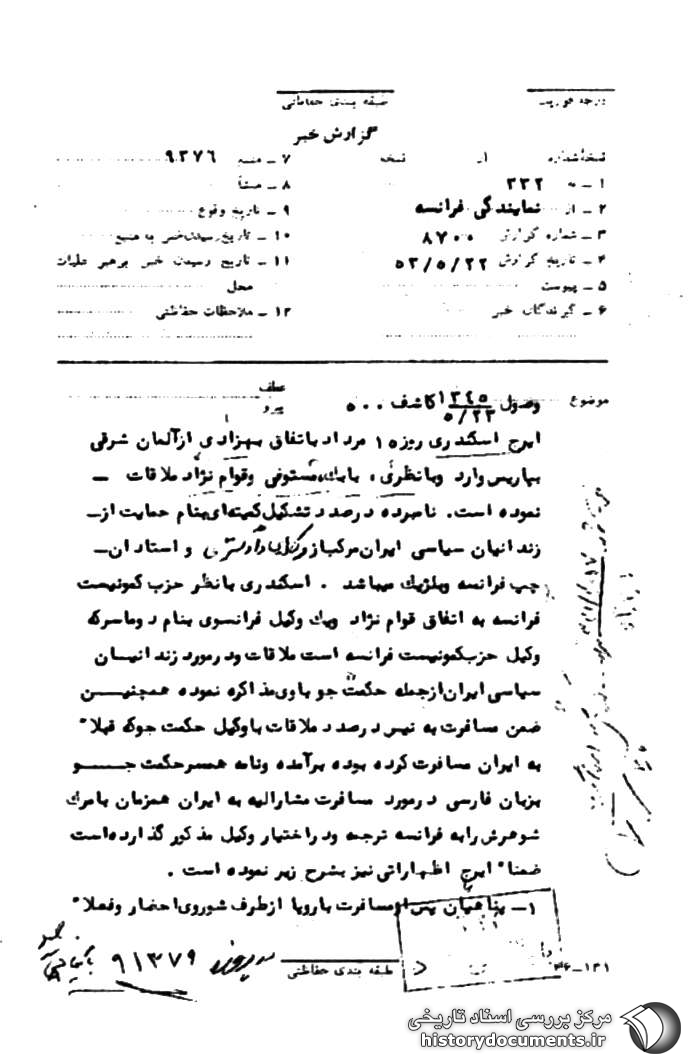 درجه فوریت
طبقه بندی حفاظتی
گزارش خبر
نسخه شماره از نسخه
۱ ـ به ۳۳۲
۲ ـ از نمایندگی فرانسه
۳ ـ شماره گزارش ۸۷۰۰
۴ ـ تاریخ گزارش ۵۳/۵/۲۲
۵ ـ پیوست
۶ ـ گیرندگان خبر
۷ ـ منبع ۹۳۷۶
۸ ـ منشأ
۹ ـ تاریخ وقوع
۱۰ ـ تاریخ رسیدن خبر به منبع
۱۱ ـ تاریخ رسیدن خبر برهبر عملیات
محل
۱۲ ـ ملاحظات حفاظتی
موضوع وصول ۱۳۴۵ ۵/۲۳ کاشف ۵۰۰ عطف
پیرو
ایرج اسکندری روز ۱۵ مرداد باتفاق بهزادی ازآلمان شرقی
بپاریس وارد وبانظری، بابک، مستوفی وقوام نژاد ملاقات ـ
نموده است. نامبرده درصدد تشکیل کمیته‌ای بنام حمایت از ـ
زندانیان سیاسی ایران مرکب از وکلای دادگستری و استادان ـ
چپ فرانسه وبلژیک میباشد . اسکندری بانظر حزب کمونیست
فرانسه به اتفاق قوام نژاد ویک وکیل فرانسوی بنام دوماسرکه
وکیل حزبکمونیست فرانسه است ملاقات ودرمورد زندانیـان
سیاسی ایران ازجمله حکمت جو باوی مذاکره نموده همچنیـن
ضمن مسافرت به نیس درصدد ملاقات باوکیل حکمت جوکه قبلا"
به ایران مسافرت کرده بوده برآمده ونامه همسرحکمت جـــو
بزبان فارسی درمورد مسافرت مشارالیه به ایران همزمان بامرگ
شوهرش رابه فرانسه ترجمه ودراختیار وکیل مذکور گذارده‌است
ضمنا" ایرج اظهاراتی نیز بشرح زیر نموده است .
۱ـ پناهیان پس از مسافرت باروپا ازطرف شوروی احضار وفعلا"
۹۱۳۷۹
طبقه بندی حفاظتی
۳۶ـ۱۳۱
مرکز بررسی اسناد تاریخی
historydocuments.ir